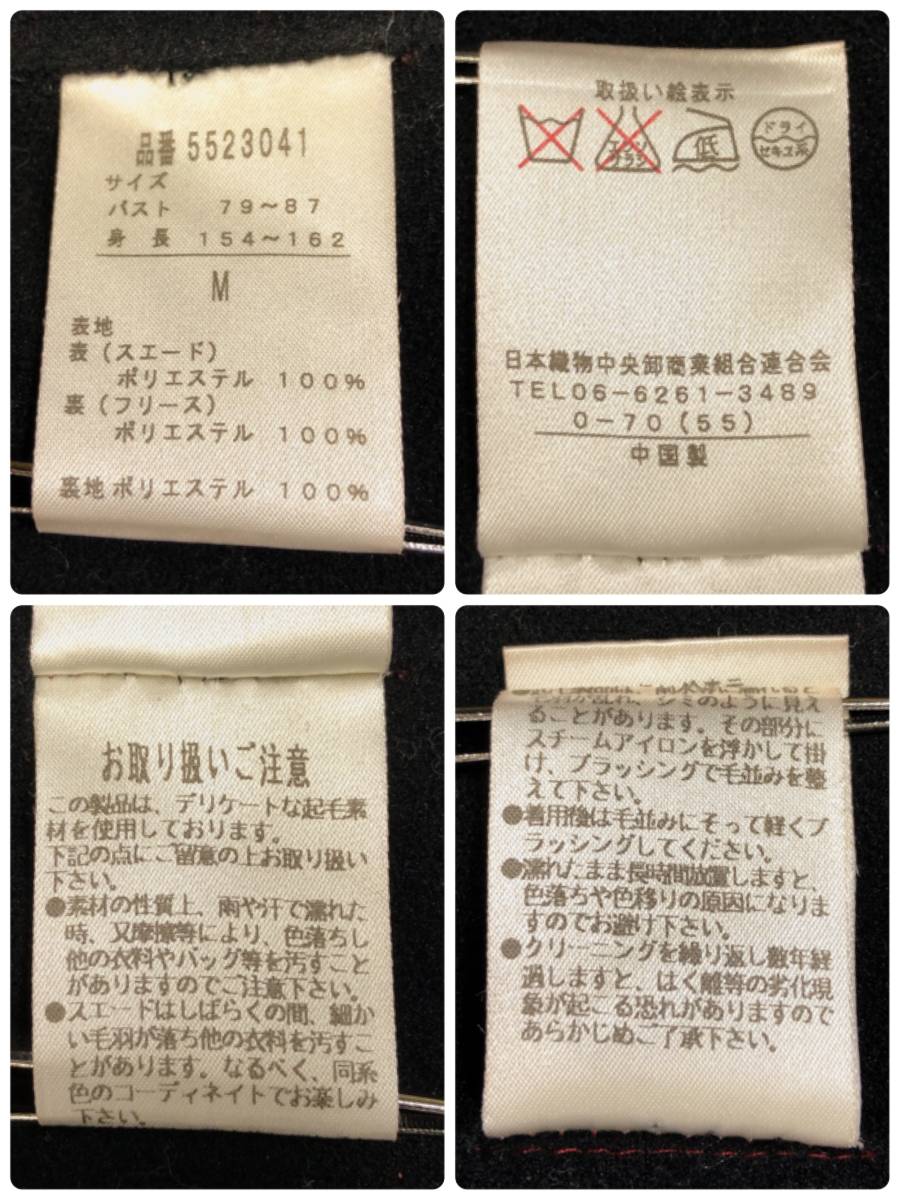 品番 5523041
サイズ
バスト 79～87
身長 154～162
M
表地
表（スエード）
ポリエステル 100%
裏（フリース）
ポリエステル 100%
裏地 ポリエステル 100%
取扱い絵表示
エンソ
サラシ
低
ドライ
セキユ系
日本織物中央卸商業組合連合会
TEL06-6261-3489
0-70(55)
中国製
お取り扱いご注意
この製品は、デリケートな起毛素
材を使用しております。
下記の点にご留意の上お取り扱い
下さい。
●素材の性質上、雨や汗で濡れた
時、又摩擦等により、色落ちし
他の衣料やバッグ等を汚すこと
がありますのでご注意下さい。
●スエードはしばらくの間、細か
い毛羽が落ち他の衣料を汚すこ
とがあります。なるべく、同系
色のコーディネイトでお楽しみ
下さい。
乱れ、シミのように見え
ることがあります。その部分に
スチームアイロンを浮かして掛
け、ブラッシングで毛並みを整
えて下さい。
●着用後は毛並みにそって軽くブ
ラッシングしてください。
●濡れたまま長時間放置しますと、
色落ちや色移りの原因になりま
すのでお避け下さい。
●クリーニングを繰り返し数年経
過しますと、はく離等の劣化現
象が起こる恐れがありますので
あらかじめご了承下さい。